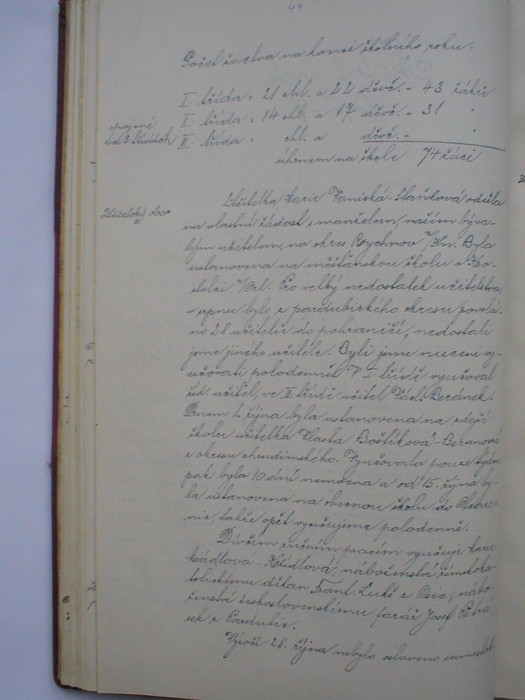 64
Počet žactva na konci školního roku:
I. třída: 21 chl. a 22 děvč. - 43 žáků
spojené II. třída: 14 chl. a 17 děvč. - 31 "
III. třída: chl. a děvč. -
úhrnem na škole 74 žáci
Učitelský sbor
Učitelka Marie Vaniská-Slavíková odešla
na vlastní žádost s manželem, naším býva-
lým učitelem, na okres Rychnov n/Kn. Byla
ustanovena na měšťanskou školu v Ko-
stelci n/Orl. Pro velký nedostatek učitelstva,
v srpnu bylo z pardubického okresu povolá-
no 28 učitelů do pohraničí, nedostali
jsme jiného učitele. Byli jsme nuceni vy-
učovati polodenně. V I. třídě vyučoval
říd. učitel, ve II. třídě učitel Václ. Beránek.
Dnem 1. října byla ustanovena na zdejší
školu učitelka Vlasta Boštíková-Beranová
z okresu chrudimského. Vyučovala pouze týden,
pak byla 10 dnů nemocna a od 15. října by-
la ustanovena na obecnou školu do
nic, takže opět vyučujeme polodenně.
Dívčím ručním pracím vyučuje Marie
Mádlova-Křídlová, náboženství římskoka-
tolickému děkan Frant. Lukš z Osic, nábo-
ženství československému farář Josef Petrá-
sek z Pardubic.
Výročí 28. října nebylo oslaveno samostat-